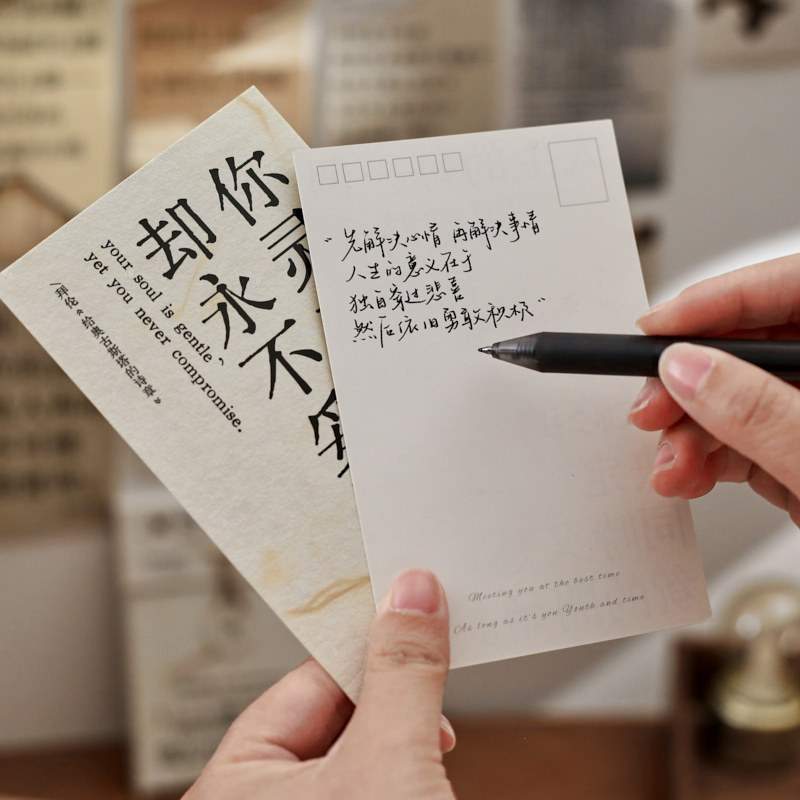 你灵
却永不
your soul is gentle,
yet you never compromise.
《拜伦《给奥古斯塔的诗章》
“先解决心情 再解决事情
人生的意义在于
独自穿过悲喜
然后依旧勇敢积极”
Meeting you at the best time
As long as it's you Youth and time